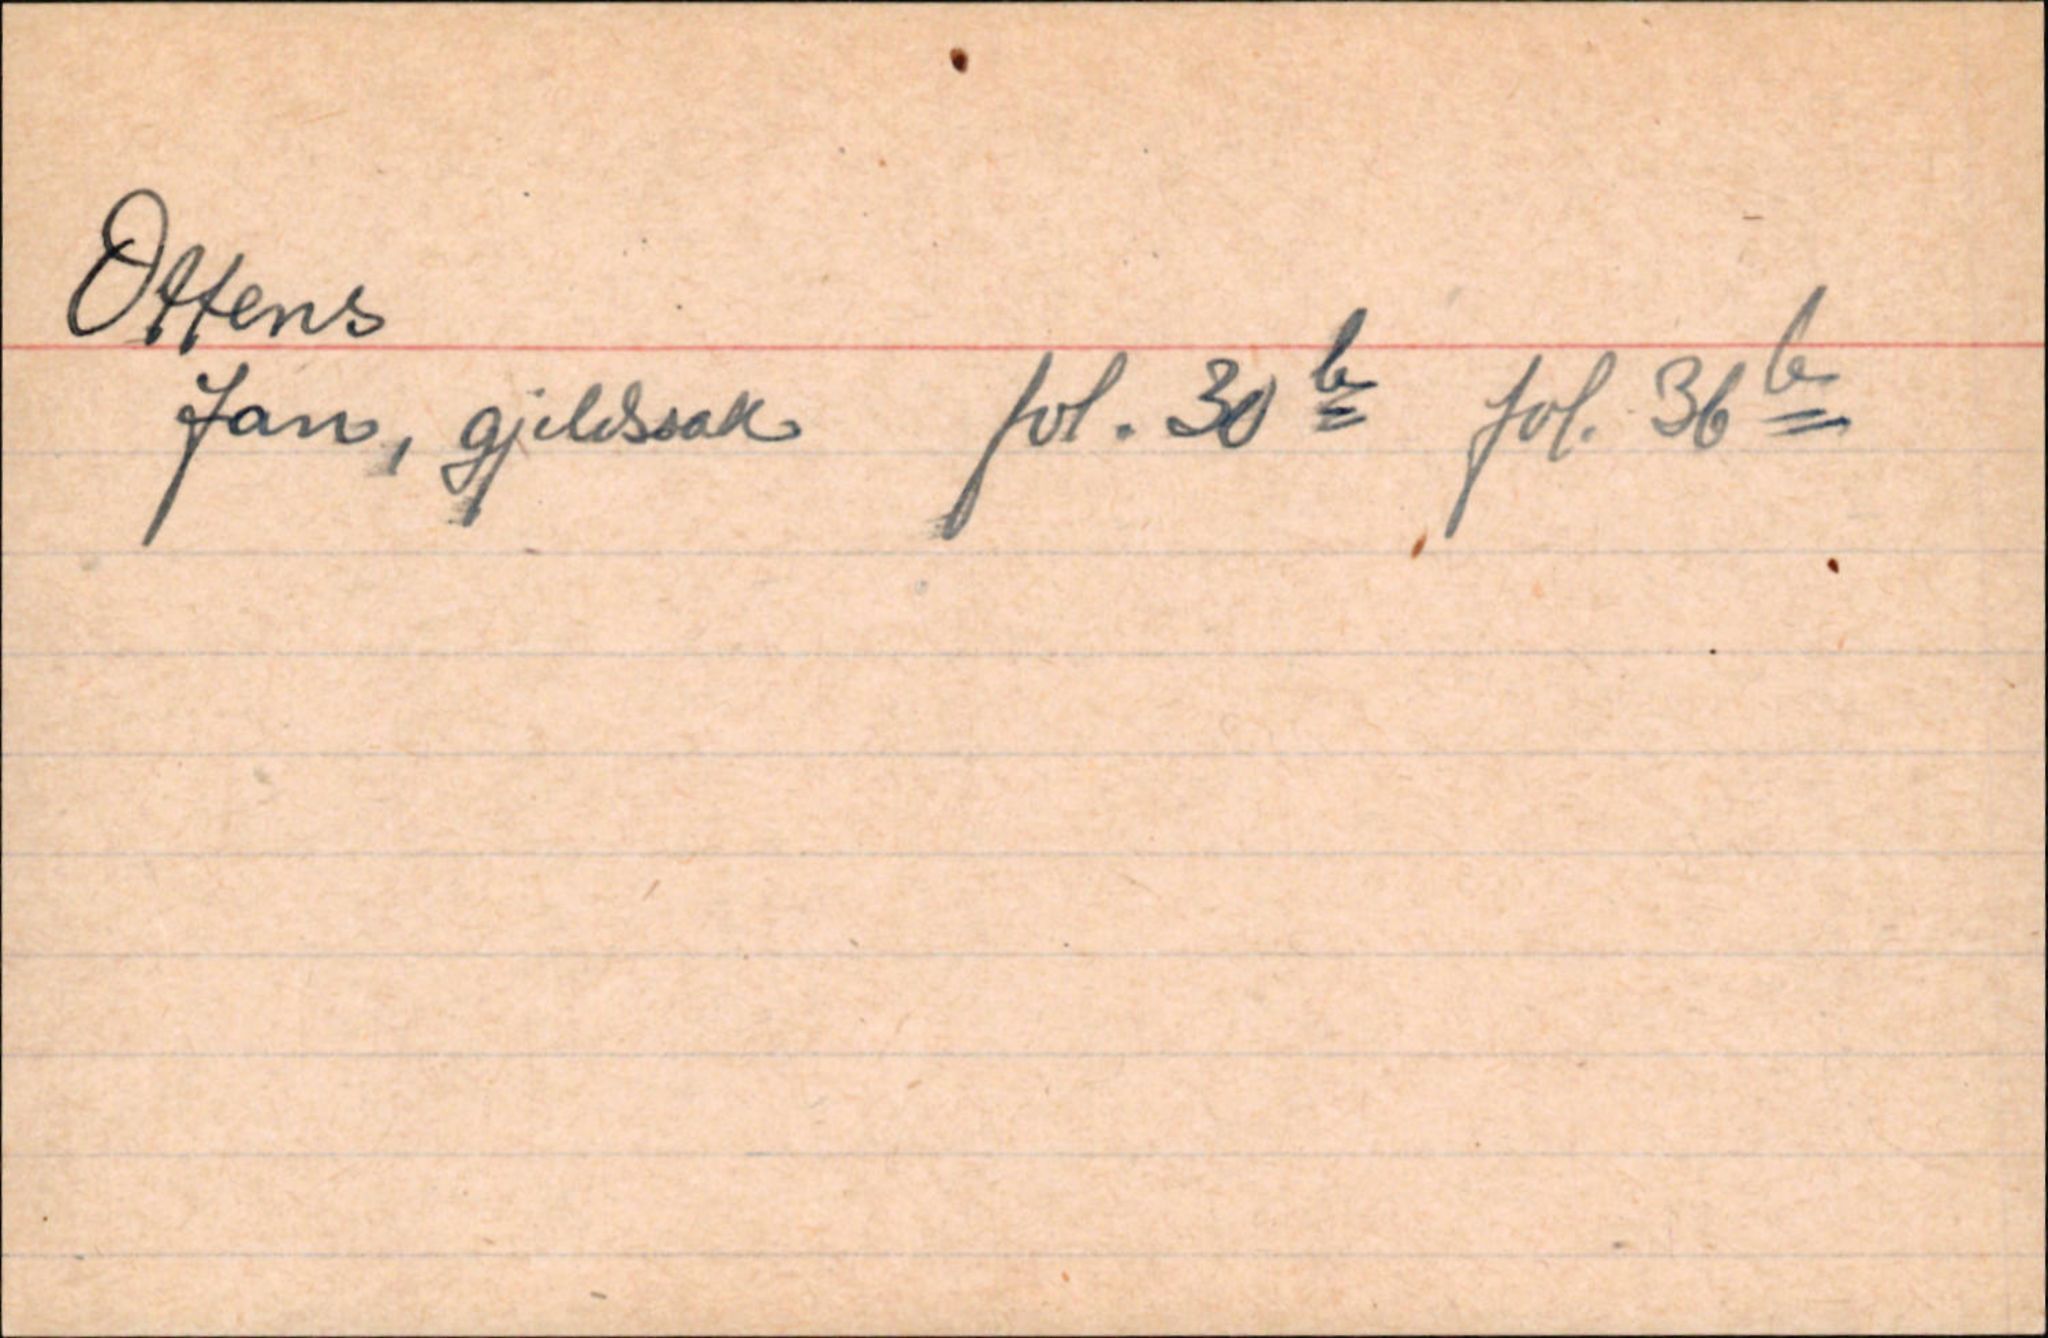 Ottens
Jan, gjeldssak fol. 30 b fol. 36 b